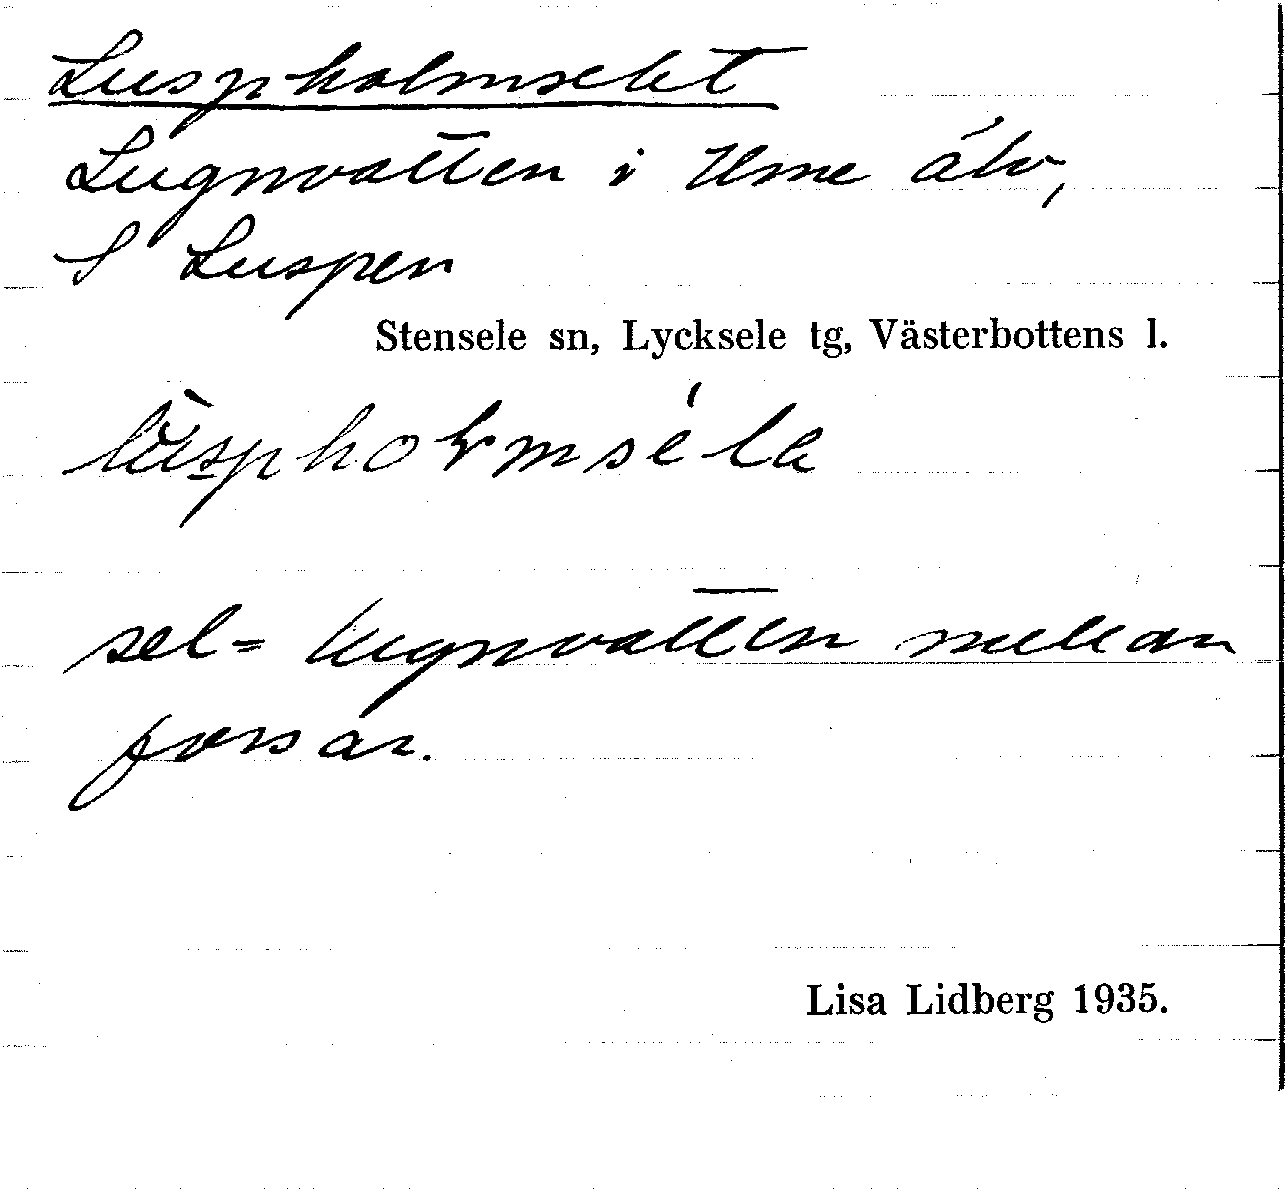 Luspholmselet
Lugnvatten i Ume älv,
S Luspen
Stensele sn, Lycksele tg, Västerbottens l.
lùspholmséla
sel = lugnvatten mellan
forsar.
Lisa Lidberg 1935.